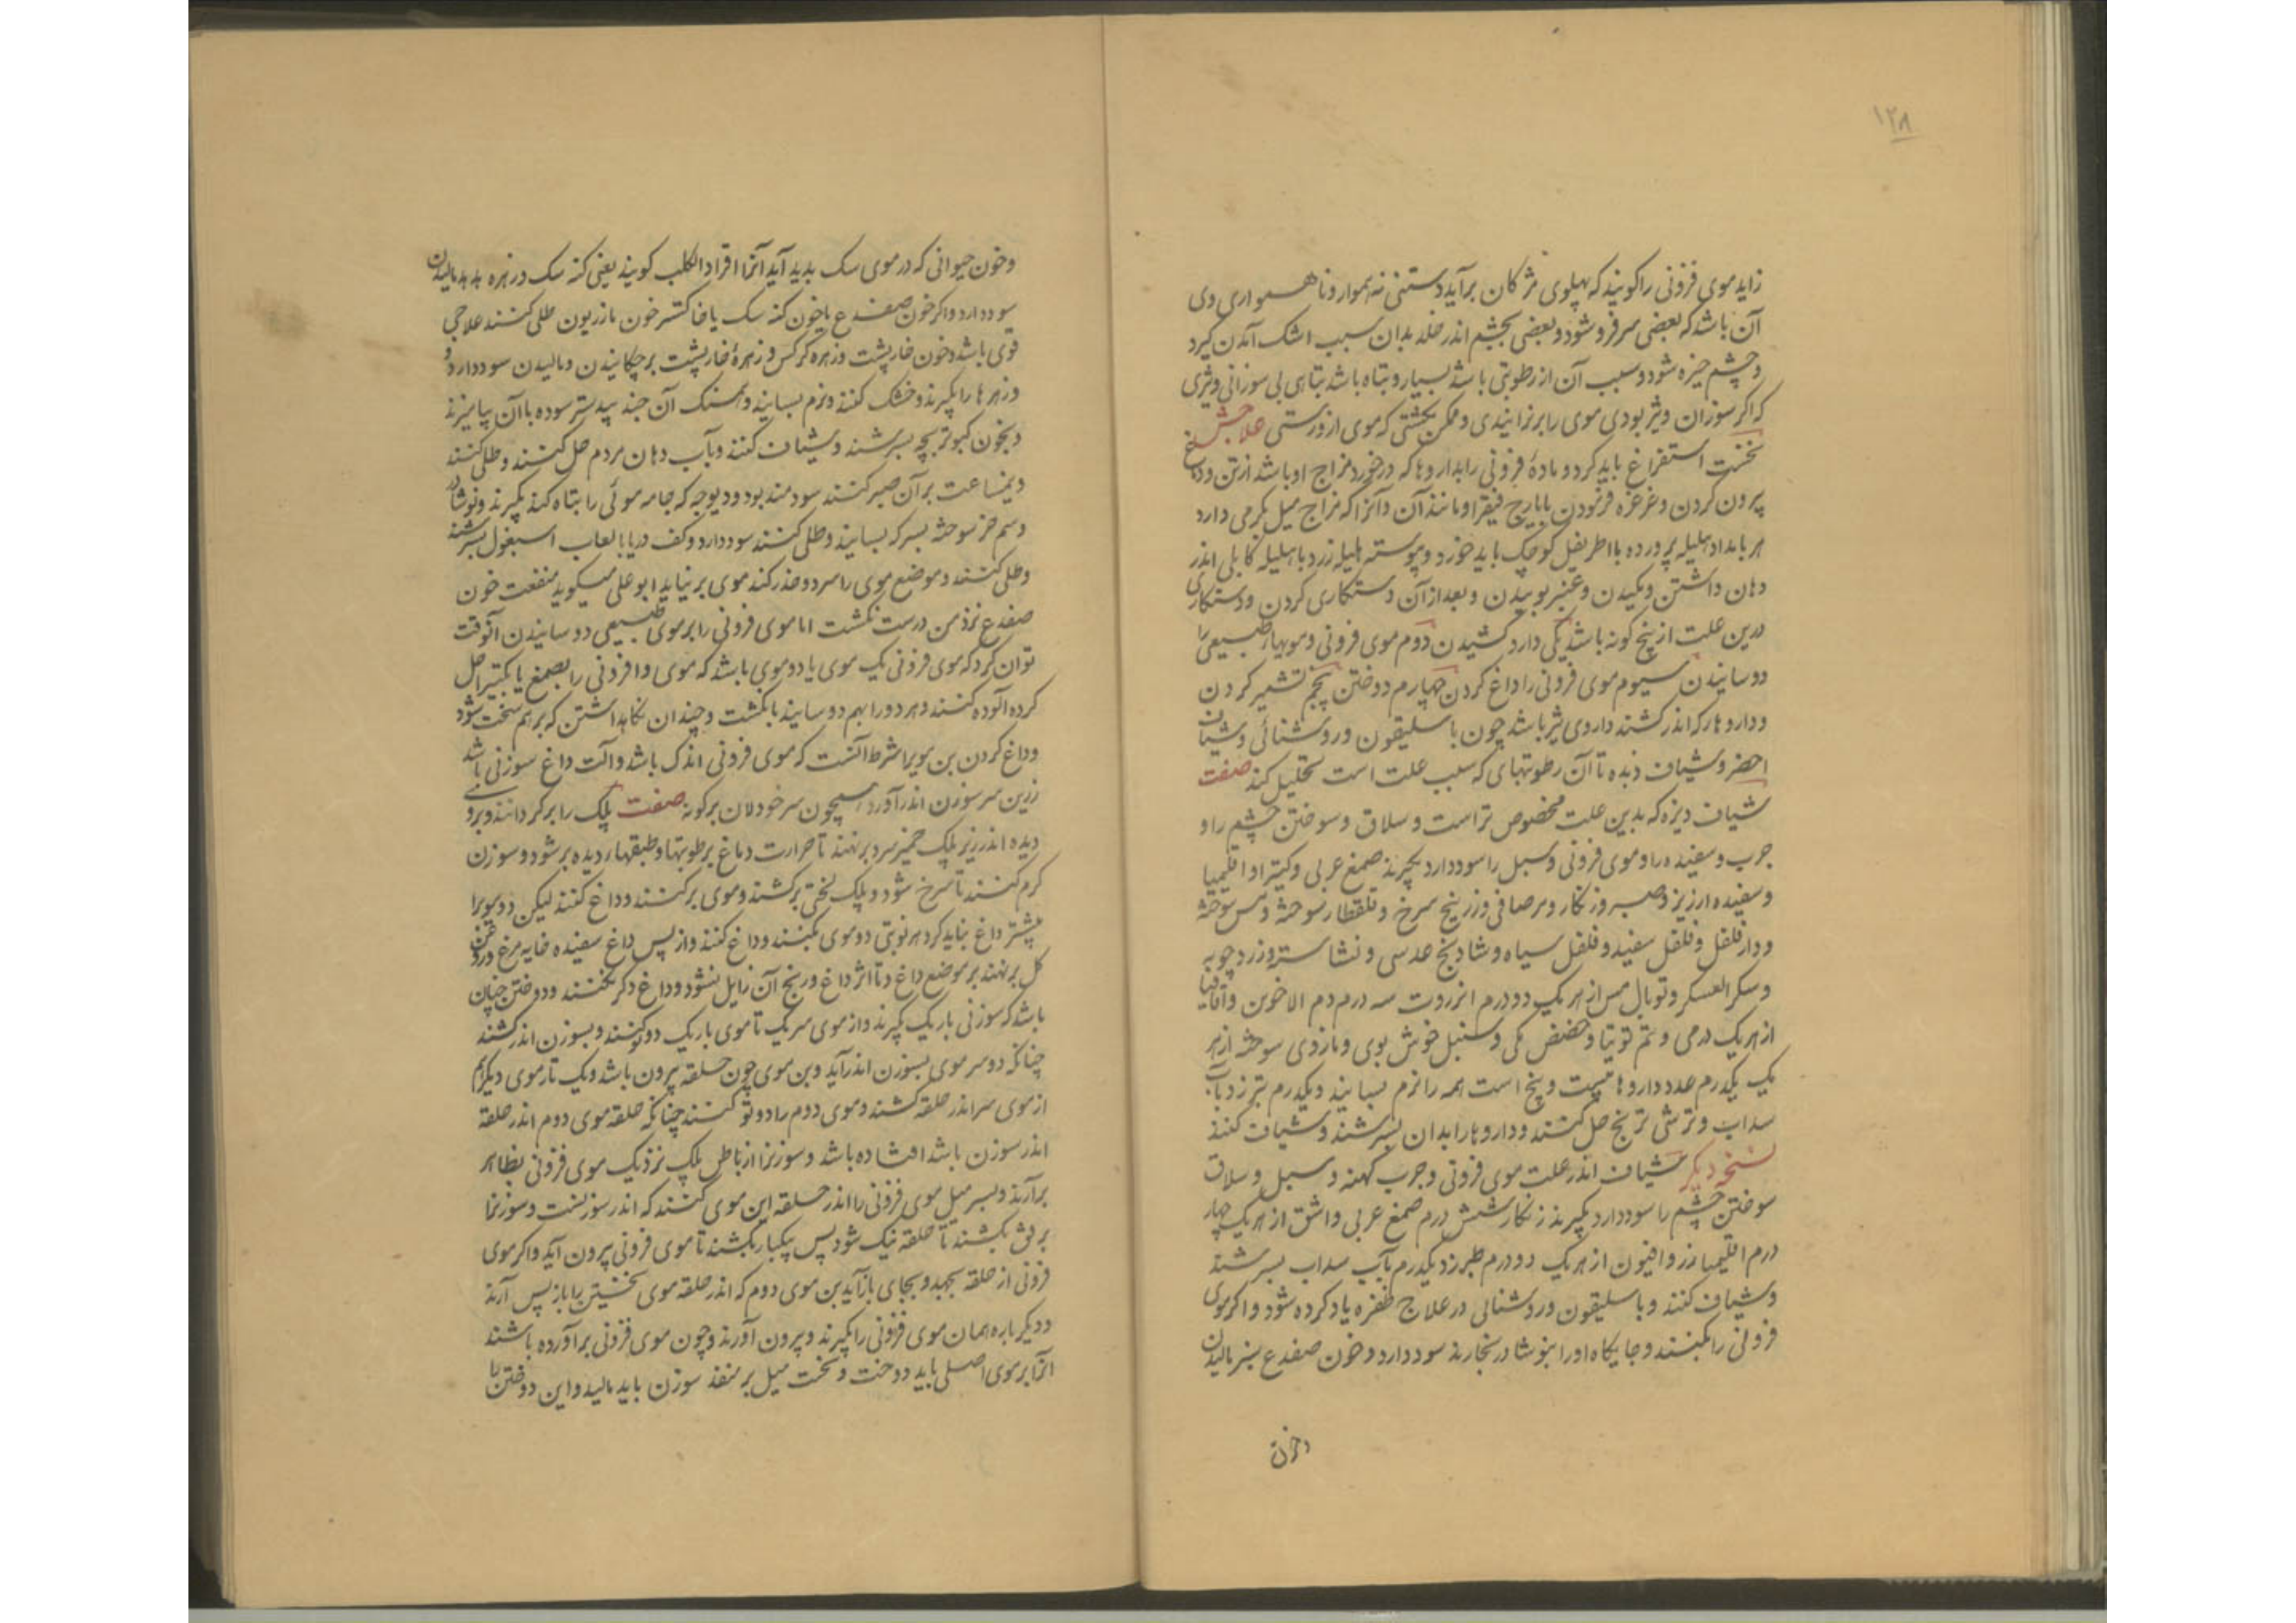 ۱۲۸
زاید موی فزونی را کویند که بپهلوی مژکان برآید و رستنی نه هموار و ناهمواری وی
آن باشد که بعضی سر فرو شود و بعضی بچشم اندر خلد بدان سبب اشک آمدن کیرد
و چشم خیره شود و سبب آن از رطوبتی باشد بسیار و تباه باشد تباهی بی سوزانی و تیزی
که اکر سوزان و تیز بودی موی را برنزایندی و ممکن نکشتی که موی ازو رستی علاجش
نخست استفراغ باید کرد و مادهٔ فزونی را بداروها که در خورد مزاج او باشد از تن و دماغ
بیرون کردن و غرغره فرمودن بایارج فیقرا و مانند آن و آنرا که مزاج میل بکرمی دارد
هر بامداد هلیله پرورده با اطریفل کوچک باید خورد و پیوسته هلیله زرد با هلیله کابلی اندر
دهان داشتن و مکیدن و عنبر بوییدن و بعد از آن دستکاری کردن و دستکاری
درین علت از پنج کونه باشد یکی دارو کشیدن دوم موی فزونی و مویهاء طبیعی را
دوسانیدن سیوم موی فزونی را داغ کردن چهارم دوختن پنجم تشمیر کردن
و داروها که اندر کشند داروی تیز باشد چون باسلیقون و روشنائی و شیاف
احضر و شیاف دیزه تا آن رطوبتهای که سبب علت است تحلیل کند صفت
شیاف دیزه که بدین علت مخصوص تر است و سلاق و سوختن چشم را و
جرب و سفیده را و موی فزونی و سبل را سود دارد بکیرند صمغ عربی و کتیرا و اقلیمیا
و سفیده ارزیز و صبر و زنکار و مر صافی و زرنیخ سرخ و قلقطار سوخته و مس سوخته
و دارفلفل و فلفل سفید و فلفل سیاه و شادنج عدسی و نشاسته و زرد چوبه
و سکر العسکر و توبال مس از هر یک دو درم انزروت سه درم دم الاخوین و اقاقیا
از هر یک درمی و نیم توتیا و حضض مکی و سنبل خوش بوی و مازوی سوخته از هر
یک یکدرم عدد داروها بیست و پنج است همه را نرم بسایند و یکدرم تبرزد بآب
سداب و ترشی ترنج حل کنند و داروها را بدان بسرشند و شیاف کنند
نسخه دیکر شیاف اندر علت موی فزونی و جرب کهنه و سبل و سلاق
سوختن چشم را سود دارد بکیرند زنکار شش درم صمغ عربی و اشق از هر یک چهار
درم اقلیمیا زر و افیون از هر یک دو درم طبرزد یکدرم بآب سداب بسرشند
و شیاف کنند و باسلیقون و روشنائی در علاج ظفره یاد کرده شود و اکر موی
فزونی را بکنند و جایکاه او را بنوشادر بخارند سود دارد و خون صفدع سبز مالیدن
و خون
و خون حیوانی که در موی سک بدید آید آنرا اقراد الکلب کویند یعنی کنه سک در زهره هدهد مالیدن
سود دارد و اکر خون صفدع با خون کنه سک یا خاکستر خون مازریون طلی کنند علاجی
قوی باشد و خون خارپشت و زهره کرکس و زهرهٔ خارپشت برچکانیدن و مالیدن سود دارد و
و زهرها را بکیرند و خشک کنند و نرم بسایند و همسنک آن جند بیدستر سوده با آن بیامیزند
و بخون کبوتر بچه بسرشند و شیاف کنند و بآب دهان مردم حل کنند و طلی کنند
و نیمساعت بر آن صبر کنند سودمند بود و دیوچه که جامه موئی را بتاه کند بکیرند و نوشادر
و سم خر سوخته بسرکه بسایند و طلی کنند سود دارد و کف دریا بالعاب اسبغول بسرشند
و طلی کنند و موضع موی را سرد و خدر کند موی برنیاید ابو علی میکوید منفعت خون
صفدع نزد من درست نکشت اما موی فزونی را بر موی طبیعی دوسانیدن آنوقت
توان کرد که موی فزونی یک موی یا دو موی باشد که موی وا فزونی را بصمغ یا بکتیرا حل
کرده آلوده کنند و هر دو را بهم دوسانند بانکشت و چندان نکاه داشتن که برهم سخت شود
و داغ کردن بن مویرا شرط آنست که موی فزونی اندک باشد و آلت داغ سوزنی باشد
زرین سر سوزن اندر آورده همچون سر خود لان برکونه صفت پلک را برکردانند و بروی
دیده اندر زیر پلک خمیر سرد برنهند تا حرارت داغ برطوبتها و طبقهاء دیده برشود و سوزن
کرم کنند تا سرخ شود و پلک لختی برکشند و موی برکنند و داغ کنند لیکن دو مویرا
بیشتر داغ نباید کرد هر نوبتی دو موی بکنند و داغ کنند و از پس داغ سفیده خایه مرغ و روغن
کل برنهند بر موضع داغ و تا اثر داغ و رنج آن زایل نشود داغ دکر نکنند و دوختن چنان
باشد که سوزنی باریک بکیرند و از موی سر یک تا موی باریک دو تو کنند و بسوزن اندر کشند
چنانکه دو سر موی بسوزن اندر آید و بن موی چون حلقه بیرون باشد و یک تار موی دیکر هم
از موی سر اندر حلقه کشند و موی دوم را دو تو کنند چنانکه حلقه موی دوم اندر حلقه
اندر سوزن باشد افتاده باشد و سوزنرا از باطن پلک نزدیک موی فزونی بظاهر
برآرند و بسر میل موی فزونی را اندر حلقه این موی کنند که اندر سوزنست و سوزنرا
برفق بکشند تا حلقه تنک شود پس بیکبار بکشند تا موی فزونی بیرون آید و اکر موی
فزونی از حلقه بجهد و بجای باز آید بن موی دوم که اندر حلقه موی نخستین را باز پس آرند
و دیکر باره همان موی فزونی را بکیرند و بیرون آورند و چون موی فزونی برآورده باشند
آنرا بر موی اصلی باید دوخت و نخست میل بر منفذ سوزن باید مالید و این دوختن را